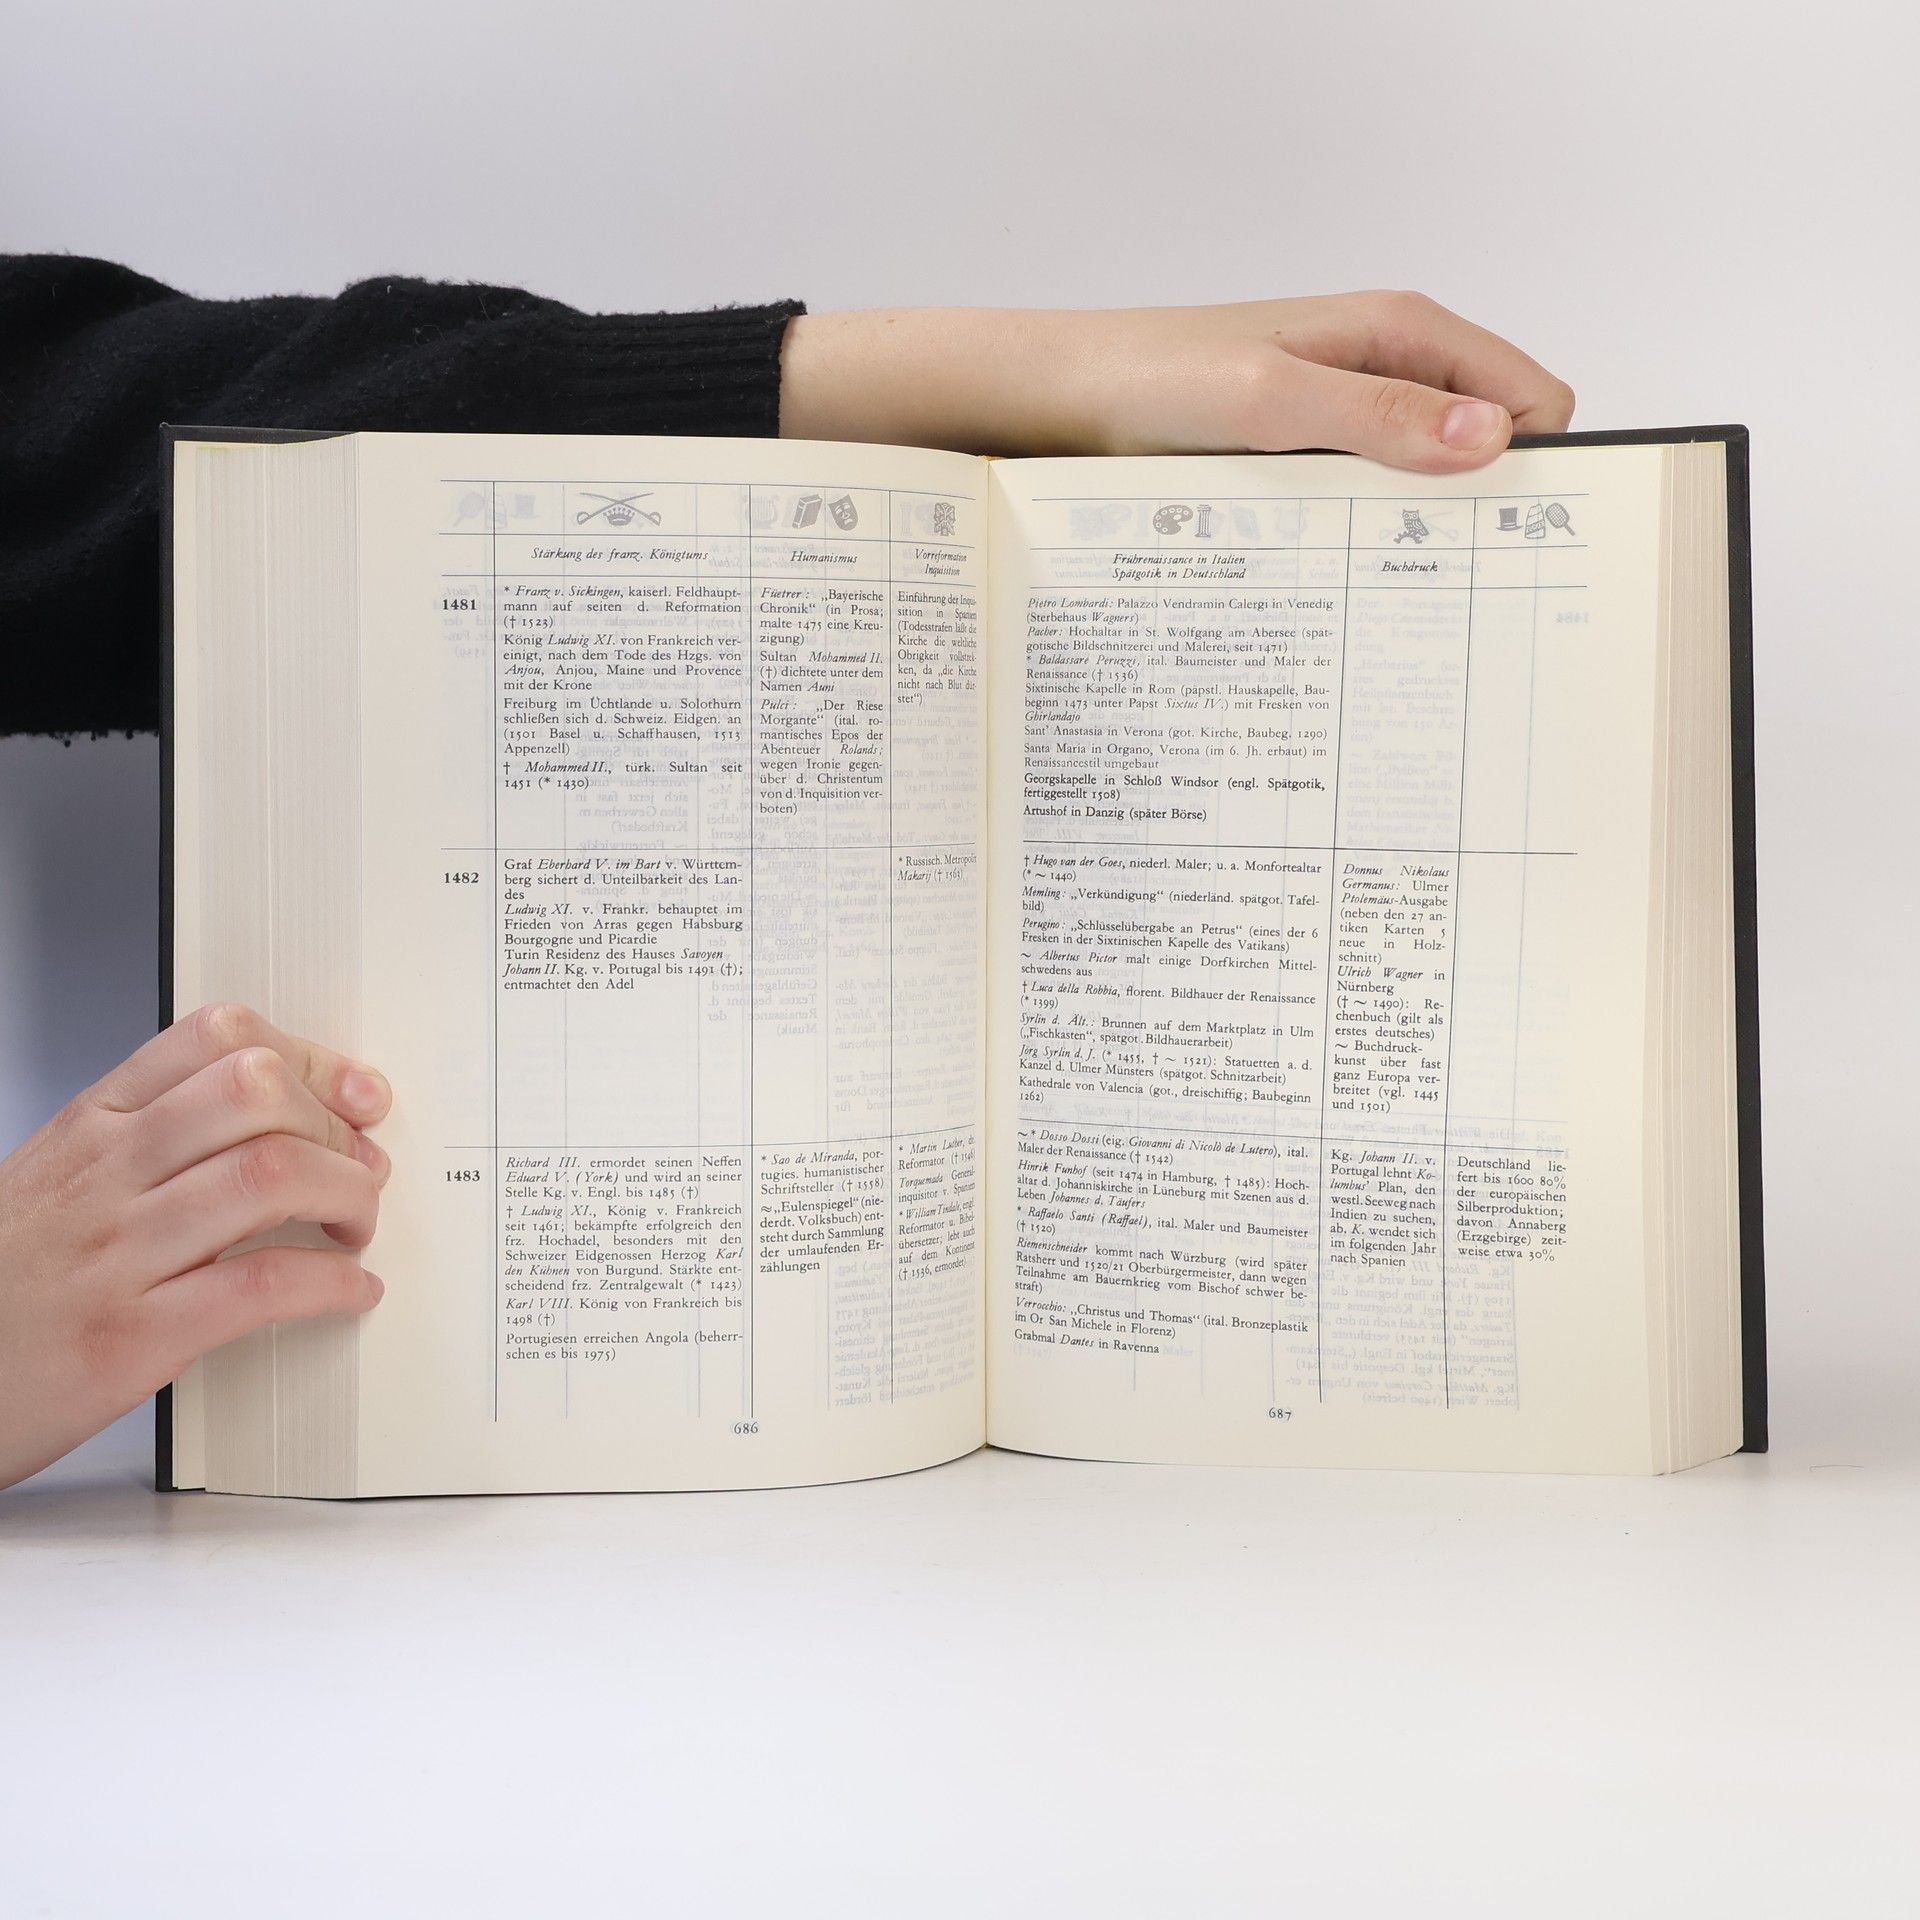 Stärkung des franz. Königtums
Humanismus
Vorreformation
Inquisition
1481
* Franz v. Sickingen, kaiserl. Feldhaupt-
mann auf seiten d. Reformation
(† 1523)
König Ludwig XI. von Frankreich ver-
einigt, nach dem Tode des Hzgs. von
Anjou, Anjou, Maine und Provence
mit der Krone
Freiburg im Üchtlande u. Solothurn
schließen sich d. Schweiz. Eidgen. an
(1501 Basel u. Schaffhausen, 1513
Appenzell)
† Mohammed II., türk. Sultan seit
1451 (* 1430)
Füetrer: „Bayerische
Chronik“ (in Prosa;
malte 1475 eine Kreu-
zigung)
Sultan Mohammed II.
(†) dichtete unter dem
Namen Auni
Pulci: „Der Riese
Morgante“ (ital. ro-
mantisches Epos der
Abenteuer Rolands;
wegen Ironie gegen-
über d. Christentum
von d. Inquisition ver-
boten)
Einführung der Inqui-
sition in Spanien
(Todesstrafen läßt die
Kirche die weltliche
Obrigkeit vollstrek-
ken, da „die Kirche
nicht nach Blut dür-
stet“)
1482
Graf Eberhard V. im Bart v. Württem-
berg sichert d. Unteilbarkeit des Lan-
des
Ludwig XI. v. Frankr. behauptet im
Frieden von Arras gegen Habsburg
Bourgogne und Picardie
Turin Residenz des Hauses Savoyen
Johann II. Kg. v. Portugal bis 1491 (†);
entmachtet den Adel
* Russisch. Metropolit
Makarij († 1563)
1483
Richard III. ermordet seinen Neffen
Eduard V. (York) und wird an seiner
Stelle Kg. v. Engl. bis 1485 (†)
† Ludwig XI., König v. Frankreich
seit 1461; bekämpfte erfolgreich den
frz. Hochadel, besonders mit den
Schweizer Eidgenossen Herzog Karl
den Kühnen von Burgund. Stärkte ent-
scheidend frz. Zentralgewalt (* 1423)
Karl VIII. König von Frankreich bis
1498 (†)
Portugiesen erreichen Angola (beherr-
schen es bis 1975)
* Sao de Miranda, por-
tugies. humanistischer
Schriftsteller († 1558)
≈ „Eulenspiegel“ (nie-
derdt. Volksbuch) ent-
steht durch Sammlung
der umlaufenden Er-
zählungen
* Martin Luther, dt.
Reformator († 1546)
Torquemada General-
inquisitor v. Spanien
* William Tindale, engl.
Reformator u. Bibel-
übersetzer; lebt auch
auf dem Kontinent
(† 1536, ermordet)
686
Frührenaissance in Italien
Spätgotik in Deutschland
Buchdruck
Pietro Lombardi: Palazzo Vendramin Calergi in Venedig
(Sterbehaus Wagners)
Pacher: Hochaltar in St. Wolfgang am Abersee (spät-
gotische Bildschnitzerei und Malerei, seit 1471)
* Baldassare Peruzzi, ital. Baumeister und Maler der
Renaissance († 1536)
Sixtinische Kapelle in Rom (päpstl. Hauskapelle, Bau-
beginn 1473 unter Papst Sixtus IV.) mit Fresken von
Ghirlandajo
Sant' Anastasia in Verona (got. Kirche, Baubeg. 1290)
Santa Maria in Organo, Verona (im 6. Jh. erbaut) im
Renaissancestil umgebaut
Georgskapelle in Schloß Windsor (engl. Spätgotik,
fertiggestellt 1508)
Artushof in Danzig (später Börse)
† Hugo van der Goes, niederl. Maler; u. a. Monfortealtar
(* ~ 1440)
Memling: „Verkündigung“ (niederländ. spätgot. Tafel-
bild)
Perugino: „Schlüsselübergabe an Petrus“ (eines der 6
Fresken in der Sixtinischen Kapelle des Vatikans)
~ Albertus Pictor malt einige Dorfkirchen Mittel-
schwedens aus
† Luca della Robbia, florent. Bildhauer der Renaissance
(* 1399)
Syrlin d. Ält.: Brunnen auf dem Marktplatz in Ulm
(„Fischkasten“, spätgot. Bildhauerarbeit)
Jörg Syrlin d. J. (* 1455, † ~ 1521): Statuetten a. d.
Kanzel d. Ulmer Münsters (spätgot. Schnitzarbeit)
Kathedrale von Valencia (got., dreischiffig; Baubeginn
1262)
Donnus Nikolaus
Germanus: Ulmer
Ptolemäus-Ausgabe
(neben den 27 an-
tiken Karten 5
neue in Holz-
schnitt)
Ulrich Wagner in
Nürnberg
(† ~ 1490): Re-
chenbuch (gilt als
erstes deutsches)
~ Buchdruck-
kunst über fast
ganz Europa ver-
breitet (vgl. 1445
und 1501)
~ * Dosso Dossi (eig. Giovanni di Nicolò de Lutero), ital.
Maler der Renaissance († 1542)
Hinrik Funhof (seit 1474 in Hamburg, † 1485): Hoch-
altar d. Johanniskirche in Lüneburg mit Szenen aus d.
Leben Johannes d. Täufers
* Raffaelo Santi (Raffael), ital. Maler und Baumeister
(† 1520)
Riemenschneider kommt nach Würzburg (wird später
Ratsherr und 1520/21 Oberbürgermeister, dann wegen
Teilnahme am Bauernkrieg vom Bischof schwer be-
straft)
Verrocchio: „Christus und Thomas“ (ital. Bronzeplastik
im Or San Michele in Florenz)
Grabmal Dantes in Ravenna
Kg. Johann II. v.
Portugal lehnt Ko-
lumbus' Plan, den
westl. Seeweg nach
Indien zu suchen,
ab. K. wendet sich
im folgenden Jahr
nach Spanien
Deutschland lie-
fert bis 1600 80%
der europäischen
Silberproduktion;
davon Annaberg
(Erzgebirge) zeit-
weise etwa 30%
687